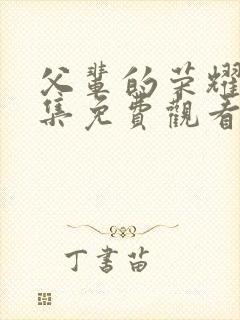 父輩的荣耀
集免費觀看
丁書苗